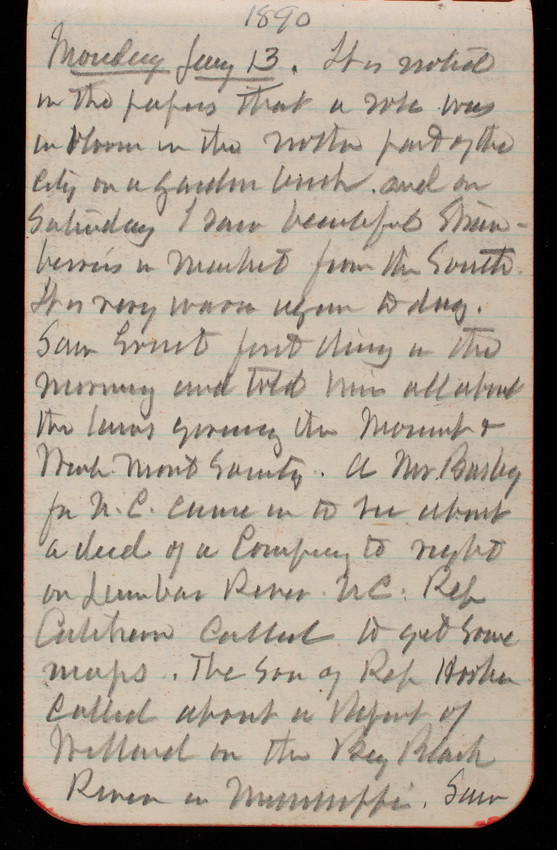 1890
Monday Jany 13. It is noted
in the papers that a rose was
in bloom in the north part of the
City on a garden bush. and on
Saturday I saw beautiful Straw-
berries in market from the South.
It is very warm again to day.
Saw Ernst first thing in the
morning and told him all about
the laws the Mount &
Mont County. A Mr. Busby
fr N.C. came in to see about
a deed of a Company to right
on Lumber River N.C. Rep
Cutcheon called to get some
maps. The son of Rep Hooker
called about a Report of
Willard on the Big Black
River in Mississippi. Saw